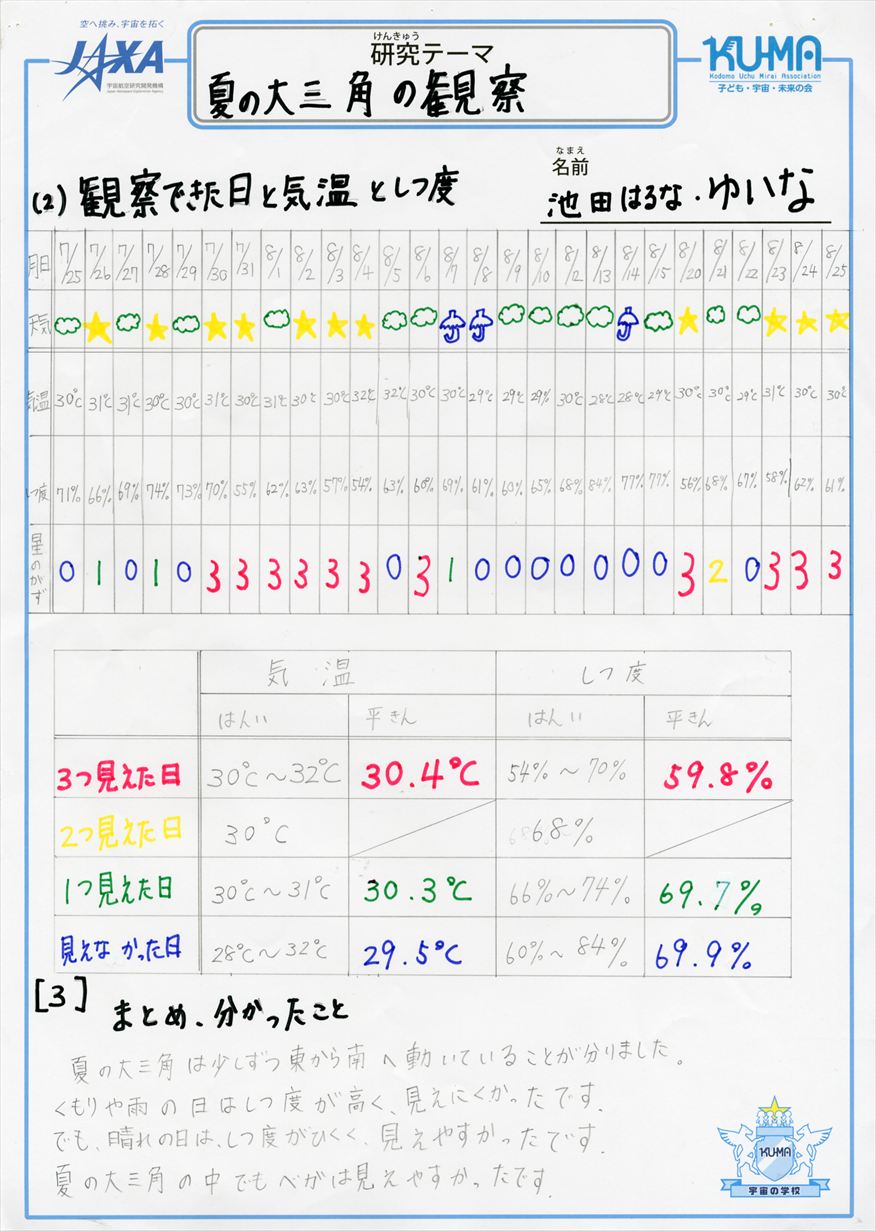 空へ挑み、宇宙を拓く
JAXA
宇宙航空研究開発機構
Japan Aerospace Exploration Agency
けんきゅう
研究テーマ
夏の大三角の観察
KU-MA
Kodomo Uchu Mirai Association
子ども・宇宙・未来の会
(2) 観察できた日と気温としつ度
なまえ
名前
池田はるな・ゆいな
月日 7/25 7/26 7/27 7/28 7/29 7/30 7/31 8/1 8/2 8/3 8/4 8/5 8/6 8/7 8/8 8/9 8/10 8/12 8/13 8/14 8/15 8/20 8/21 8/22 8/23 8/24 8/25
天気
気温 30℃ 31℃ 31℃ 30℃ 30℃ 31℃ 30℃ 31℃ 30℃ 30℃ 32℃ 32℃ 30℃ 30℃ 29℃ 29℃ 29% 30℃ 28℃ 28℃ 29℃ 30℃ 30℃ 29℃ 31℃ 30℃ 30℃
しつ度 71% 66% 69% 74% 73% 70% 55% 62% 63% 57% 54% 63% 60% 69% 61% 60% 65% 68% 84% 77% 77% 56% 68% 67% 58% 62% 61%
星のかず 0 1 0 1 0 3 3 3 3 3 3 0 3 1 0 0 0 0 0 0 0 3 2 0 3 3 3
気温 しつ度
はんい 平きん はんい 平きん
3つ見えた日 30℃～32℃ 30.4℃ 54%～70% 59.8%
2つ見えた日 30℃ 68%
1つ見えた日 30℃～31℃ 30.3℃ 66%～74% 69.7%
見えなかった日 28℃～32℃ 29.5℃ 60%～84% 69.9%
[3] まとめ、分かったこと
夏の大三角は少しずつ東から南へ動いていることが分りました。
くもりや雨の日はしつ度が高く、見えにくかったです.
でも、晴れの日は、しつ度がひくく、見えやすかったです.
夏の大三角の中でもベガは見えやすかったです.
KU-MA
宇宙の学校